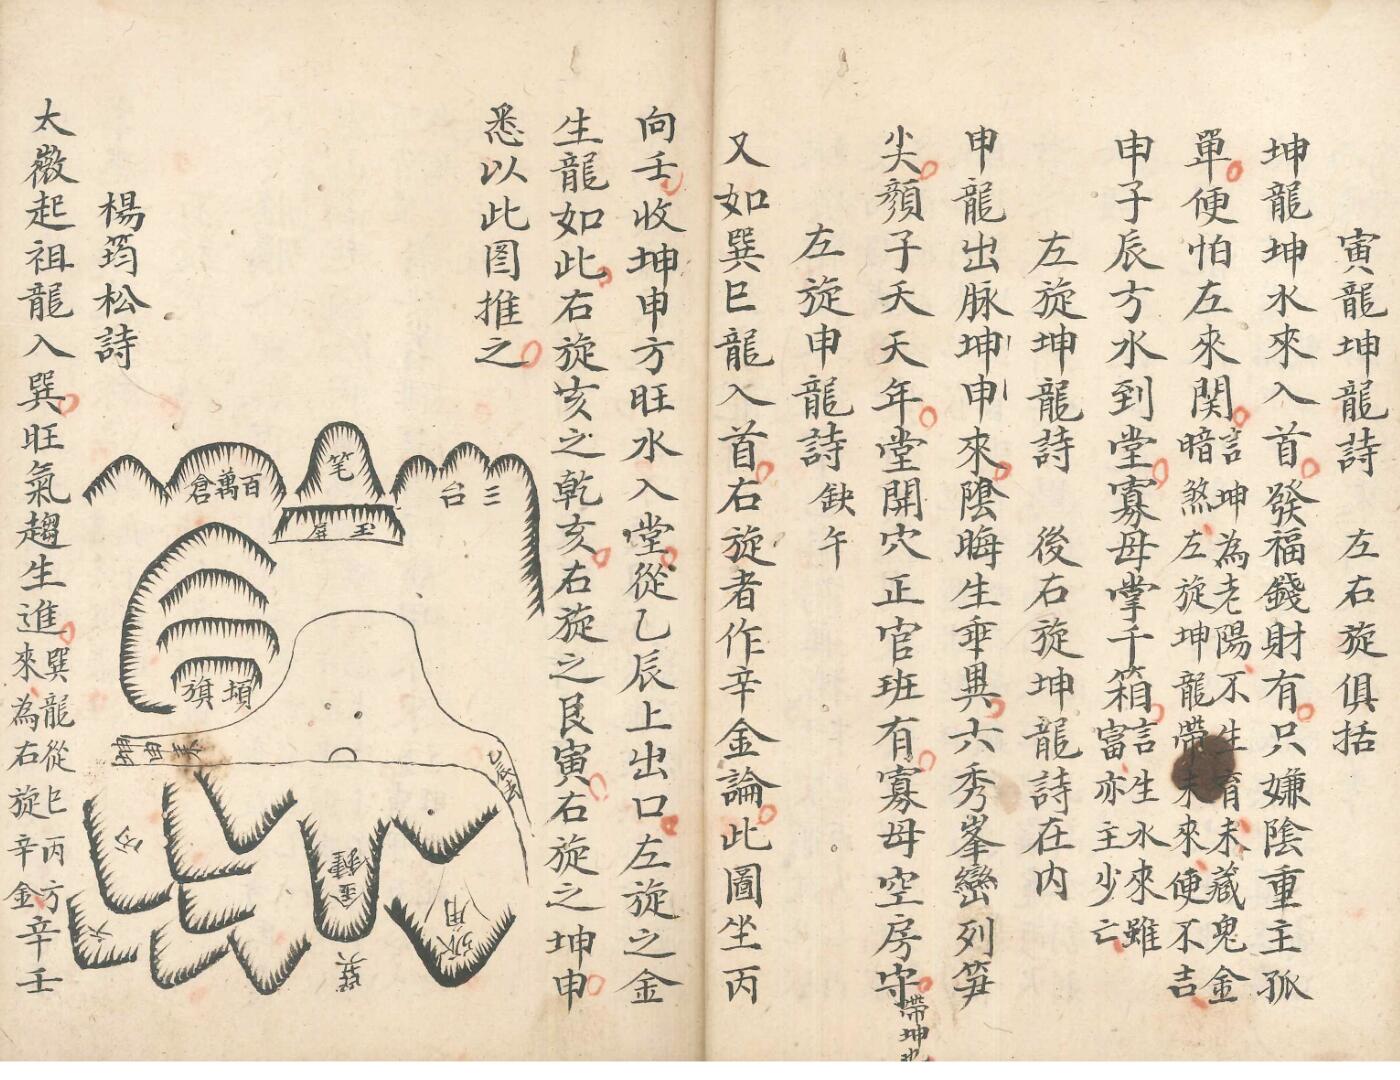 寅龍坤龍詩 左右旋俱括
坤龍坤水來入首發福錢財有只嫌陰重主孤
單便怕左來関言坤為老陽不生育未藏鬼金暗煞左旋坤龍帶未來便不吉
申子辰方水到堂寡母掌千箱言生水來雖富亦主少亡
左旋坤龍詩 後右旋坤龍詩在内
申龍出脉坤申來陰晦生乖異六秀峯巒列笋
尖顏子夭天年堂開穴正官班有寡母空房守帶坤
左旋申龍詩 缺午
又如巽巳龍入首右旋者作辛金論此圖坐丙
向壬收坤申方旺水入堂從乙辰上出口左旋之金
生龍如此右旋亥之乾亥右旋之艮寅右旋之坤申
悉以此图推之
三台
笔
百萬倉
玉屏
頓旗
乙辰去
金鐘
巽
楊筠松詩
太微起祖龍入巽旺氣趨生進巽龍從巳丙方來為右旋辛金辛壬